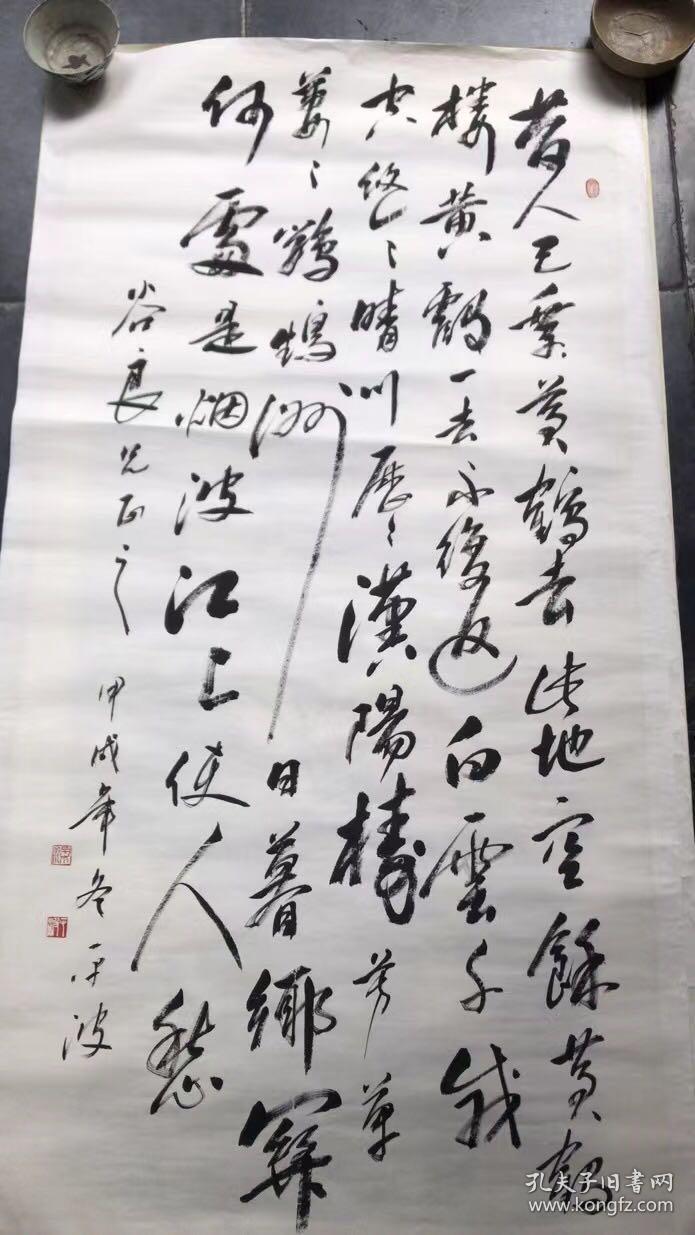 昔人已乘黄鶴去此地空餘黄鶴
楼黄鶴一去不復返白雲千載
空悠〻晴川歷〻漢陽樹芳草
萋〻鸚鵡洲日暮鄉關
何處是烟波江上使人愁
谷良兄正之
甲戌年冬平波
孔夫子旧书网
www.kongfz.com